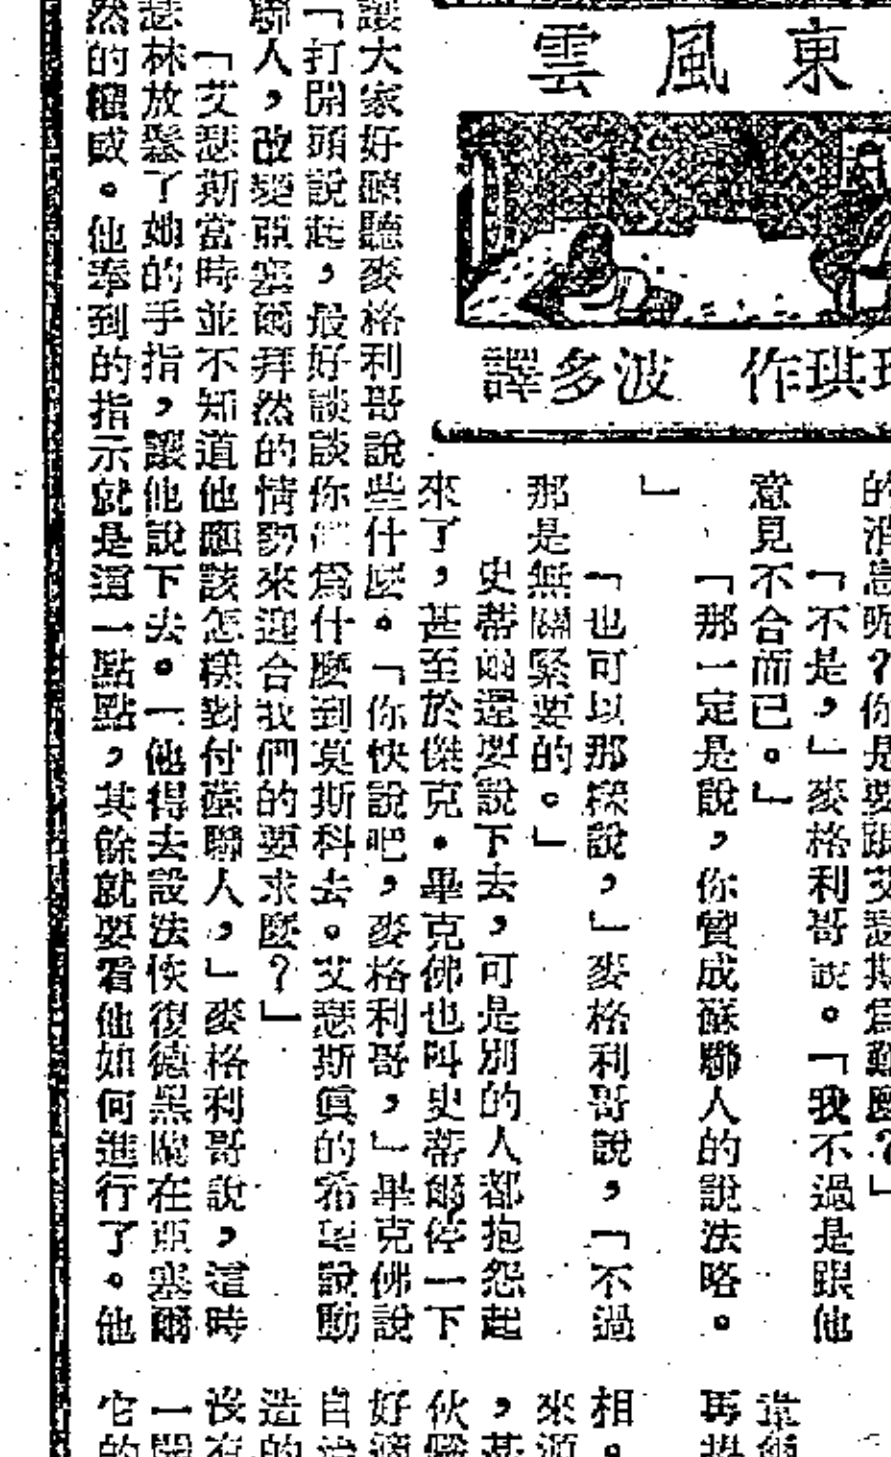 東風雲
琪作 波多譯
「不是，」麥格利哥說。「我不過是跟他
意見不合而已。」
「那一定是說，你贊成蘇聯人的說法略。
」
「也可以那樣說，」麥格利哥說，「不過
那是無關緊要的。」
史蒂爾還要說下去，可是別的人都抱怨起
來了，甚至於傑克•畢克佛也叫史蒂爾停一下
讓大家好聽聽麥格利哥說些什麼。「你快說吧，麥格利哥，」畢克佛說
「打開頭說起，最好談談你們爲什麼到莫斯科去。艾瑟斯眞的希望說動
聯人，改變亞塞爾拜然的情勢來迎合我們的要求麼？」
「艾瑟斯當時並不知道他應該怎樣對付蘇聯人，」麥格利哥說，這時
瑟林放鬆了她的手指，讓他說下去。一他得去設法恢復德黑蘭在亞塞爾
然的權威。他奉到的指示就是這一點點，其餘就要看他如何進行了。他
再
相。
來源
伙
好
自治
造的
沒有
一開
它的